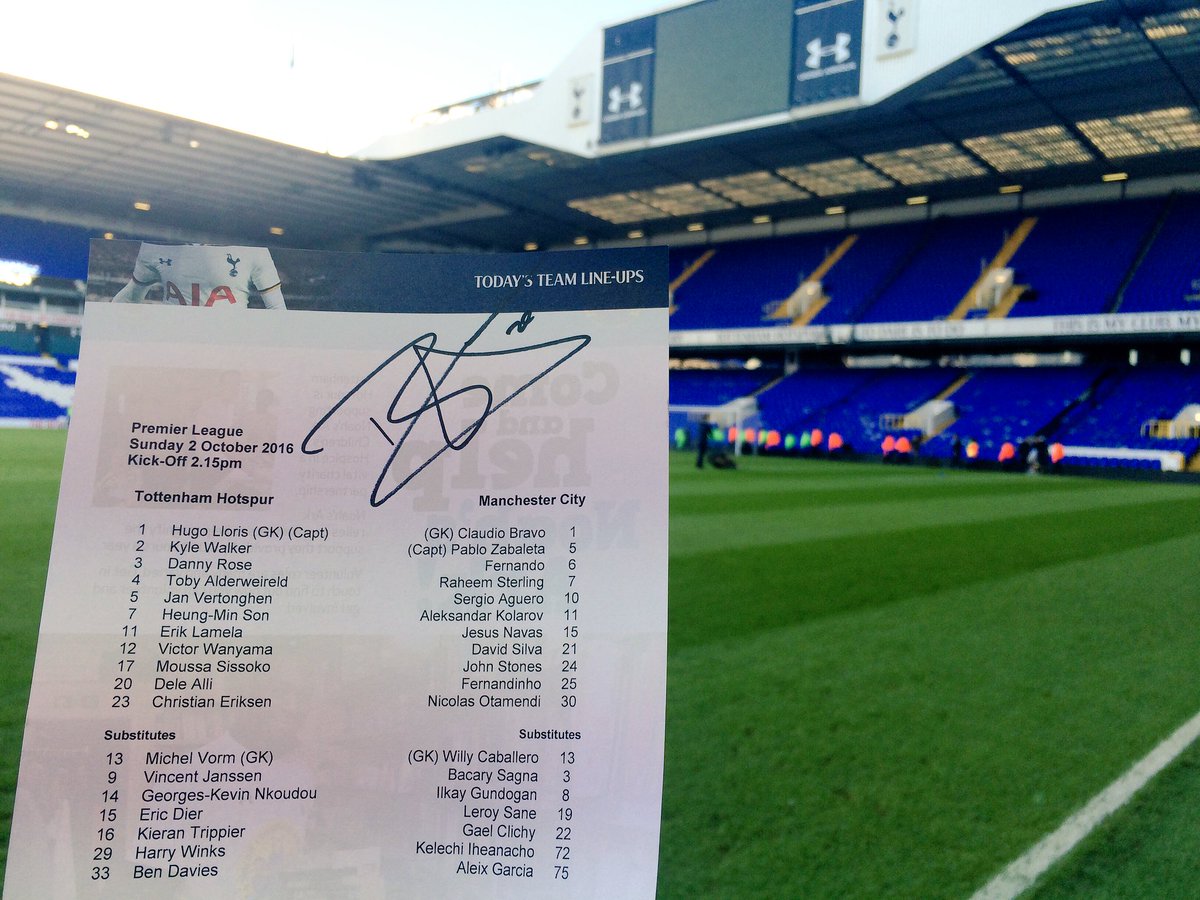 TODAY'S TEAM LINE-UPS
AIA
Premier League
Sunday 2 October 2016
Kick-Off 2.15pm
Tottenham Hotspur Manchester City
1 Hugo Lloris (GK) (Capt) (GK) Claudio Bravo 1
2 Kyle Walker (Capt) Pablo Zabaleta 5
3 Danny Rose Fernando 6
4 Toby Alderweireld Raheem Sterling 7
5 Jan Vertonghen Sergio Aguero 10
7 Heung-Min Son Aleksandar Kolarov 11
11 Erik Lamela Jesus Navas 15
12 Victor Wanyama David Silva 21
17 Moussa Sissoko John Stones 24
20 Dele Alli Fernandinho 25
23 Christian Eriksen Nicolas Otamendi 30
Substitutes Substitutes
13 Michel Vorm (GK) (GK) Willy Caballero 13
9 Vincent Janssen Bacary Sagna 3
14 Georges-Kevin Nkoudou Ilkay Gundogan 8
15 Eric Dier Leroy Sane 19
16 Kieran Trippier Gael Clichy 22
29 Harry Winks Kelechi Iheanacho 72
33 Ben Davies Aleix Garcia 75
THIS IS MY CLUB, MY